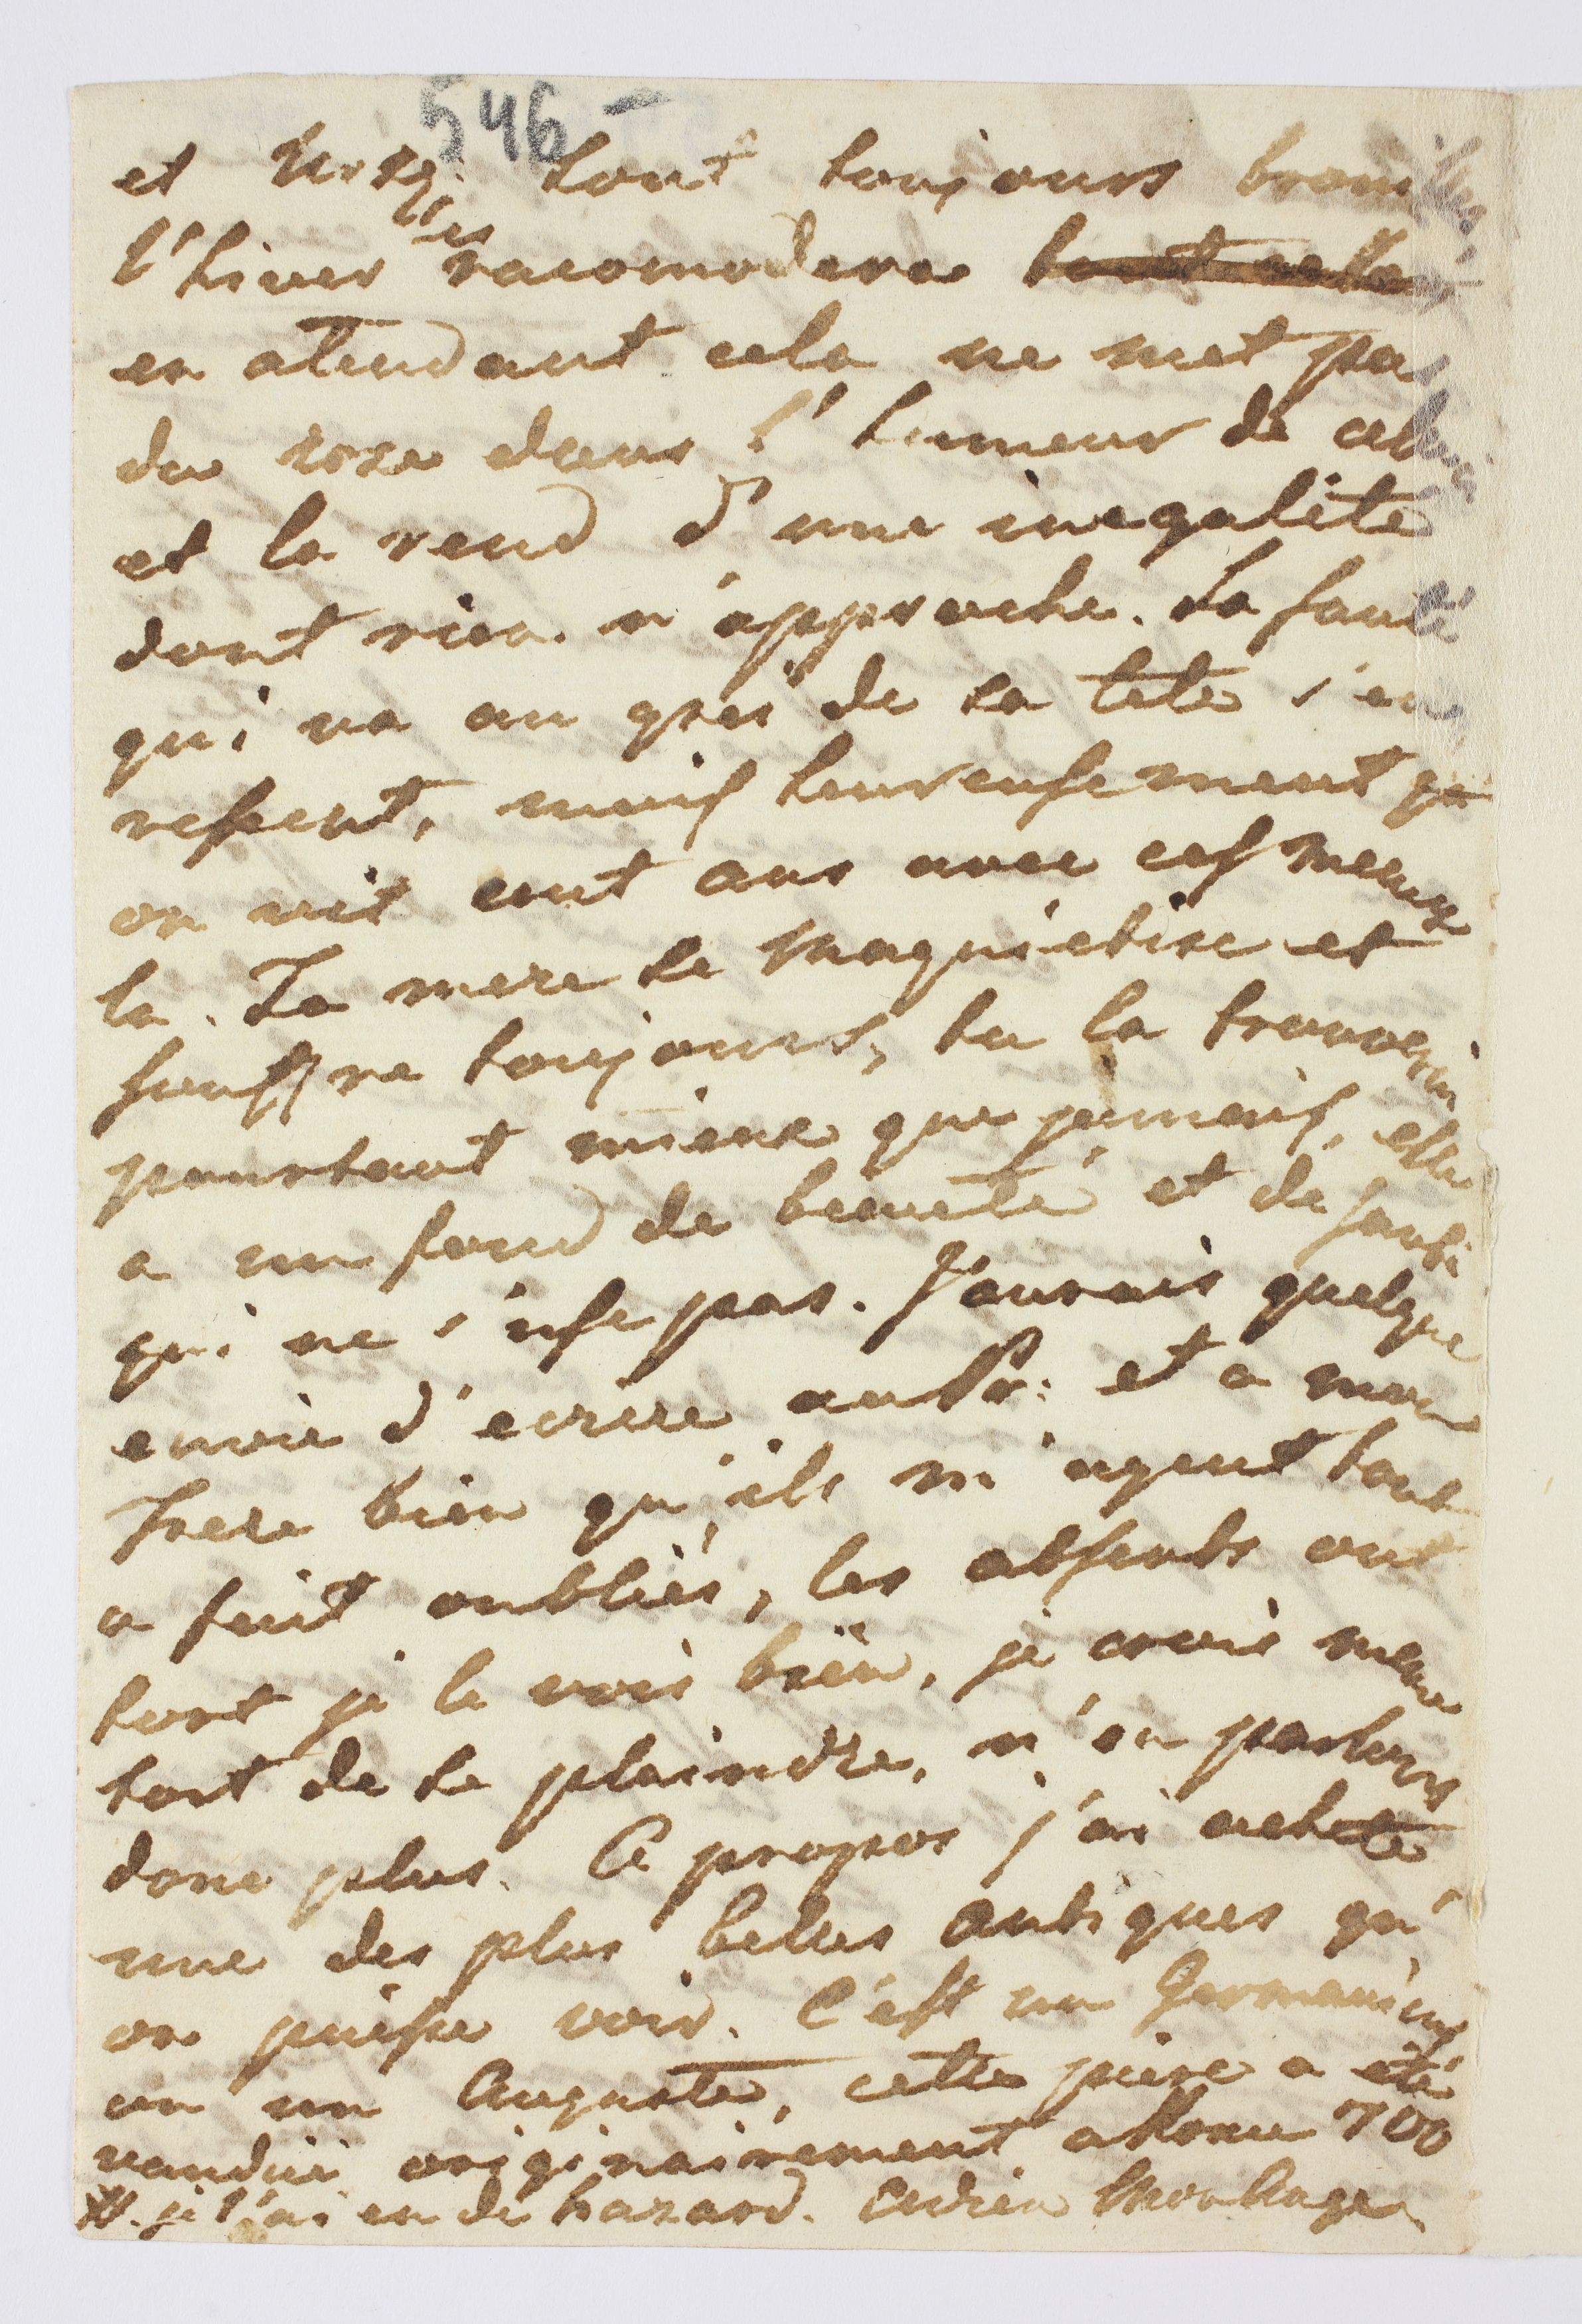 546 –
et sont toujours brouillés,
l'hiver les racomodera tout cela
en atendant cela ne met pas
du rose dans l'humeur de celui
et la rend d'une inegalité
dont rien n'approche. La santé
qui va au gres de sa tete s'en
ressent, mais heureusement qu
on vit cent ans avec ces meaux
la. Ta mere se Magnietise et
souffre toujours, tu la trouverais
pourtant mieux que jamais, elle
a un fond de beauté et de santé
qui ne s'use pas. J'aurais quelque
envie d'ecrire au Pr: et a mon
Frere bien qu'ils m'ayent tout
a fait oubliés, les absents ont
tort je le vois bien, je crois meme
tort de se plaindre, n'en parlons
donc plus. A propos j'ai acheté
une des plus belles Antiques qu'
on puisse voir. C'est un Germanicus
ou un Auguste, cette piese a été
vendue originairement a Rome 700
#. je l'ai eu de hazard. Adieu Mon Ange